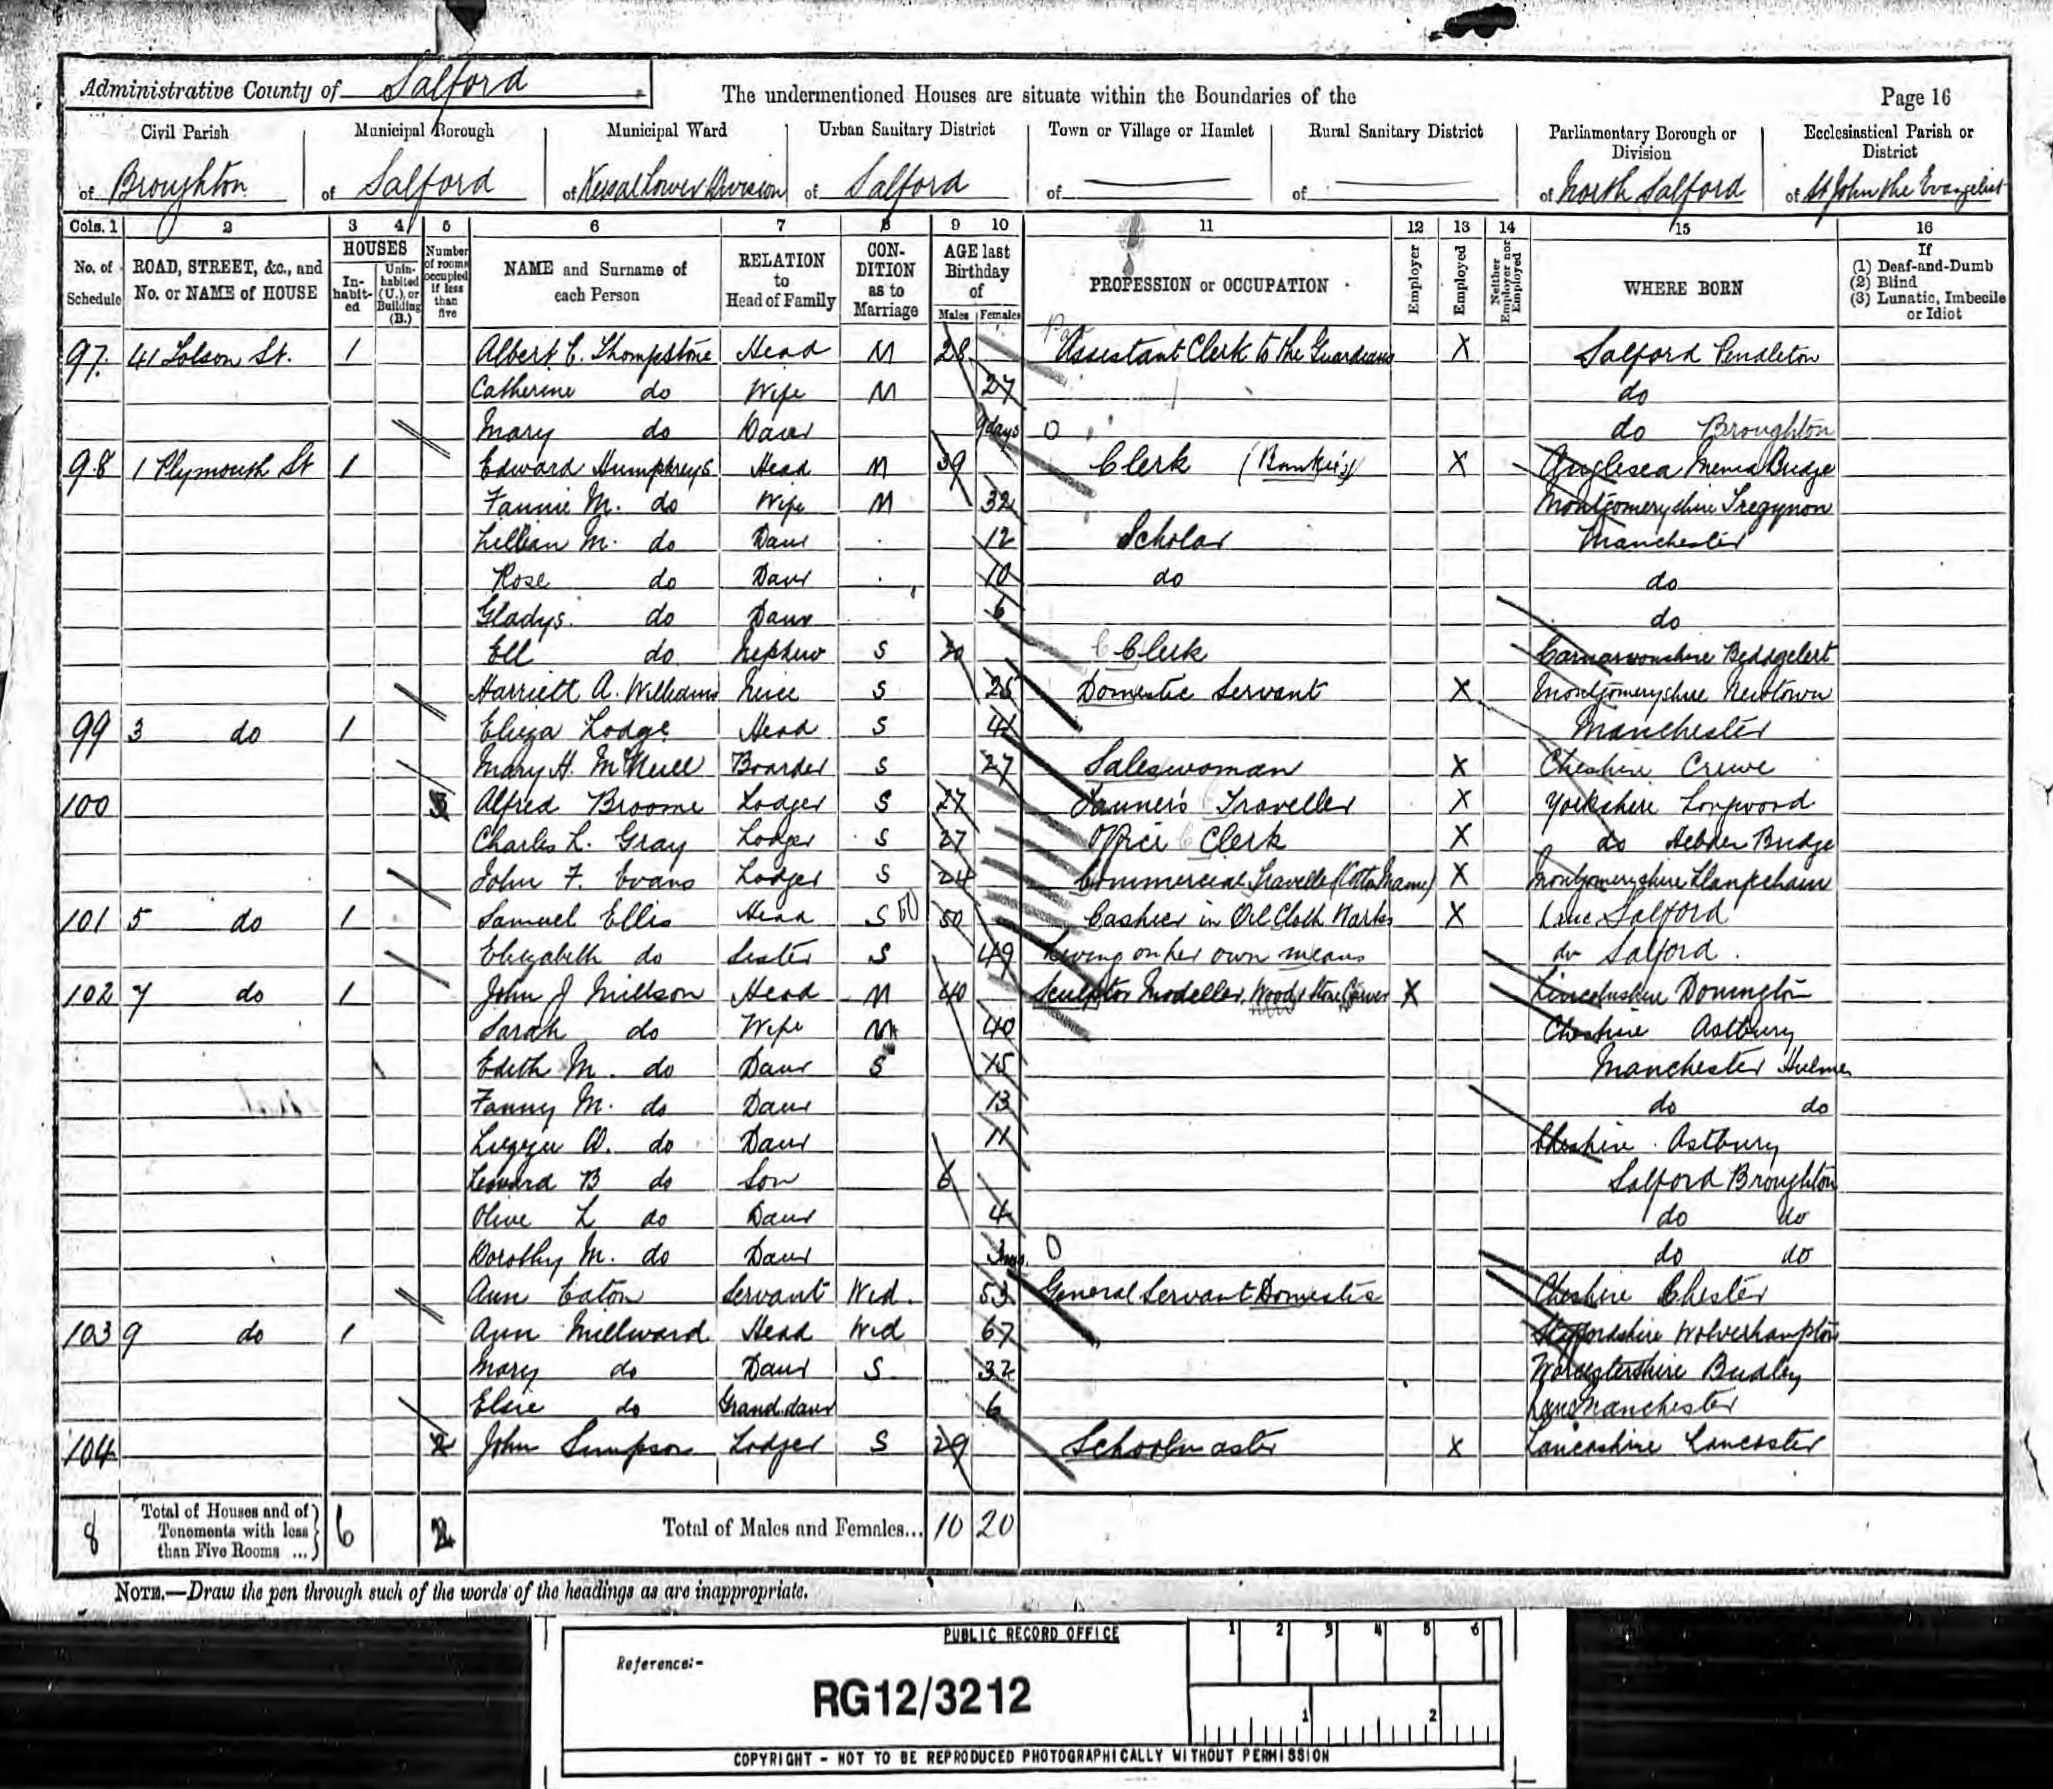 Administrative County of Salford
The undermentioned Houses are situate within the Boundaries of the
Page 16
Civil Parish
of Broughton
Municipal Borough
of Salford
Municipal Ward
of Kersal Lower Division
Urban Sanitary District
of Salford
Town or Village or Hamlet
of
Rural Sanitary District
of
Parliamentary Borough or Division
of North Salford
Ecclesiastical Parish or District
of St John the Evangelist
Cols. 1 2 3 4 5 6 7 8 9 10 11 12 13 14 15 16
No. of Schedule
ROAD, STREET, &c., and No. or NAME of HOUSE
HOUSES
Inhabited
Uninhabited (U.), or Building (B.)
Number of rooms occupied if less than five
NAME and Surname of each Person
RELATION to Head of Family
CONDITION as to Marriage
AGE last Birthday of
Males Females
PROFESSION or OCCUPATION
Employer
Employed
Neither Employer nor Employed
WHERE BORN
If (1) Deaf-and-Dumb (2) Blind (3) Lunatic, Imbecile or Idiot
97. 41 Tolson St. 1 Albert C. Thompstone Head M 28 Assistant Clerk to the Guardians X Salford Pendleton
Catherine do Wife M 27 do
Mary do Daur 9 days 0 do Broughton
98 1 Plymouth St 1 Edward Humphreys Head M 39 Clerk (Banker's) X Anglesea Menai Bridge
Fannie M. do Wife M 32 Montgomeryshire Tregynon
Lillian M. do Daur 12 Scholar Manchester
Rose do Daur 10 do do
Gladys. do Daur 6 do
Ell do Nephew S 20 C Clerk Carnarvonshire Beddgelert
Harriett A. Williams Neice S 25 Domestic Servant X Montgomeryshire Newtown
99 3 do 1 Eliza Lodge Head S 41 Manchester
Mary H. McNeill Boarder S 27 Saleswoman X Cheshire Crewe
100 3 Alfred Broome Lodger S 27 Tanner's Traveller X Yorkshire Longwood
Charles L. Gray Lodger S 27 Office C Clerk X do Hebden Bridge
John F. Evans Lodger S 24 Commercial Traveller X Montgomeryshire
101 5 do 1 Samuel Ellis Head S 50 50 Cashier in Oil Cloth Works X Lanc Salford
Elizabeth do Sister S 49 Living on her own means do Salford.
102 7 do 1 John J Millson Head M 40 Sculptor Modeller, Wood & Stone Carver X Lincolnshire Donington
Sarah do Wife M 40 Cheshire Astbury
Edith M. do Daur S 15 Manchester Hulme
Fanny M. do Daur 13 do do
do Daur 11 Cheshire Astbury
Leonard B do Son 6 Salford Broughton
Olive L do Daur 4 do do
Dorothy M. do Daur 3 mo. 0 do do
Ann Eaton Servant Wid. 53 General Servant Domestic Cheshire Chester
103 9 do 1 Ann Millward Head Wid 67 Staffordshire Wolverhampton
Mary do Daur S 32 Worcestershire Bewdley
Elsie do Grand daur 6 Lanc Manchester
104 2 John Simpson Lodger S 29 Schoolmaster X Lancashire Lancaster
8 Total of Houses and of Tenements with less than Five Rooms ... 6 2 Total of Males and Females... 10 20
NOTE.—Draw the pen through such of the words of the headings as are inappropriate.
PUBLIC RECORD OFFICE
1 2 3 4 5 6
Reference:-
RG12/3212
1 2
COPYRIGHT - NOT TO BE REPRODUCED PHOTOGRAPHICALLY WITHOUT PERMISSION